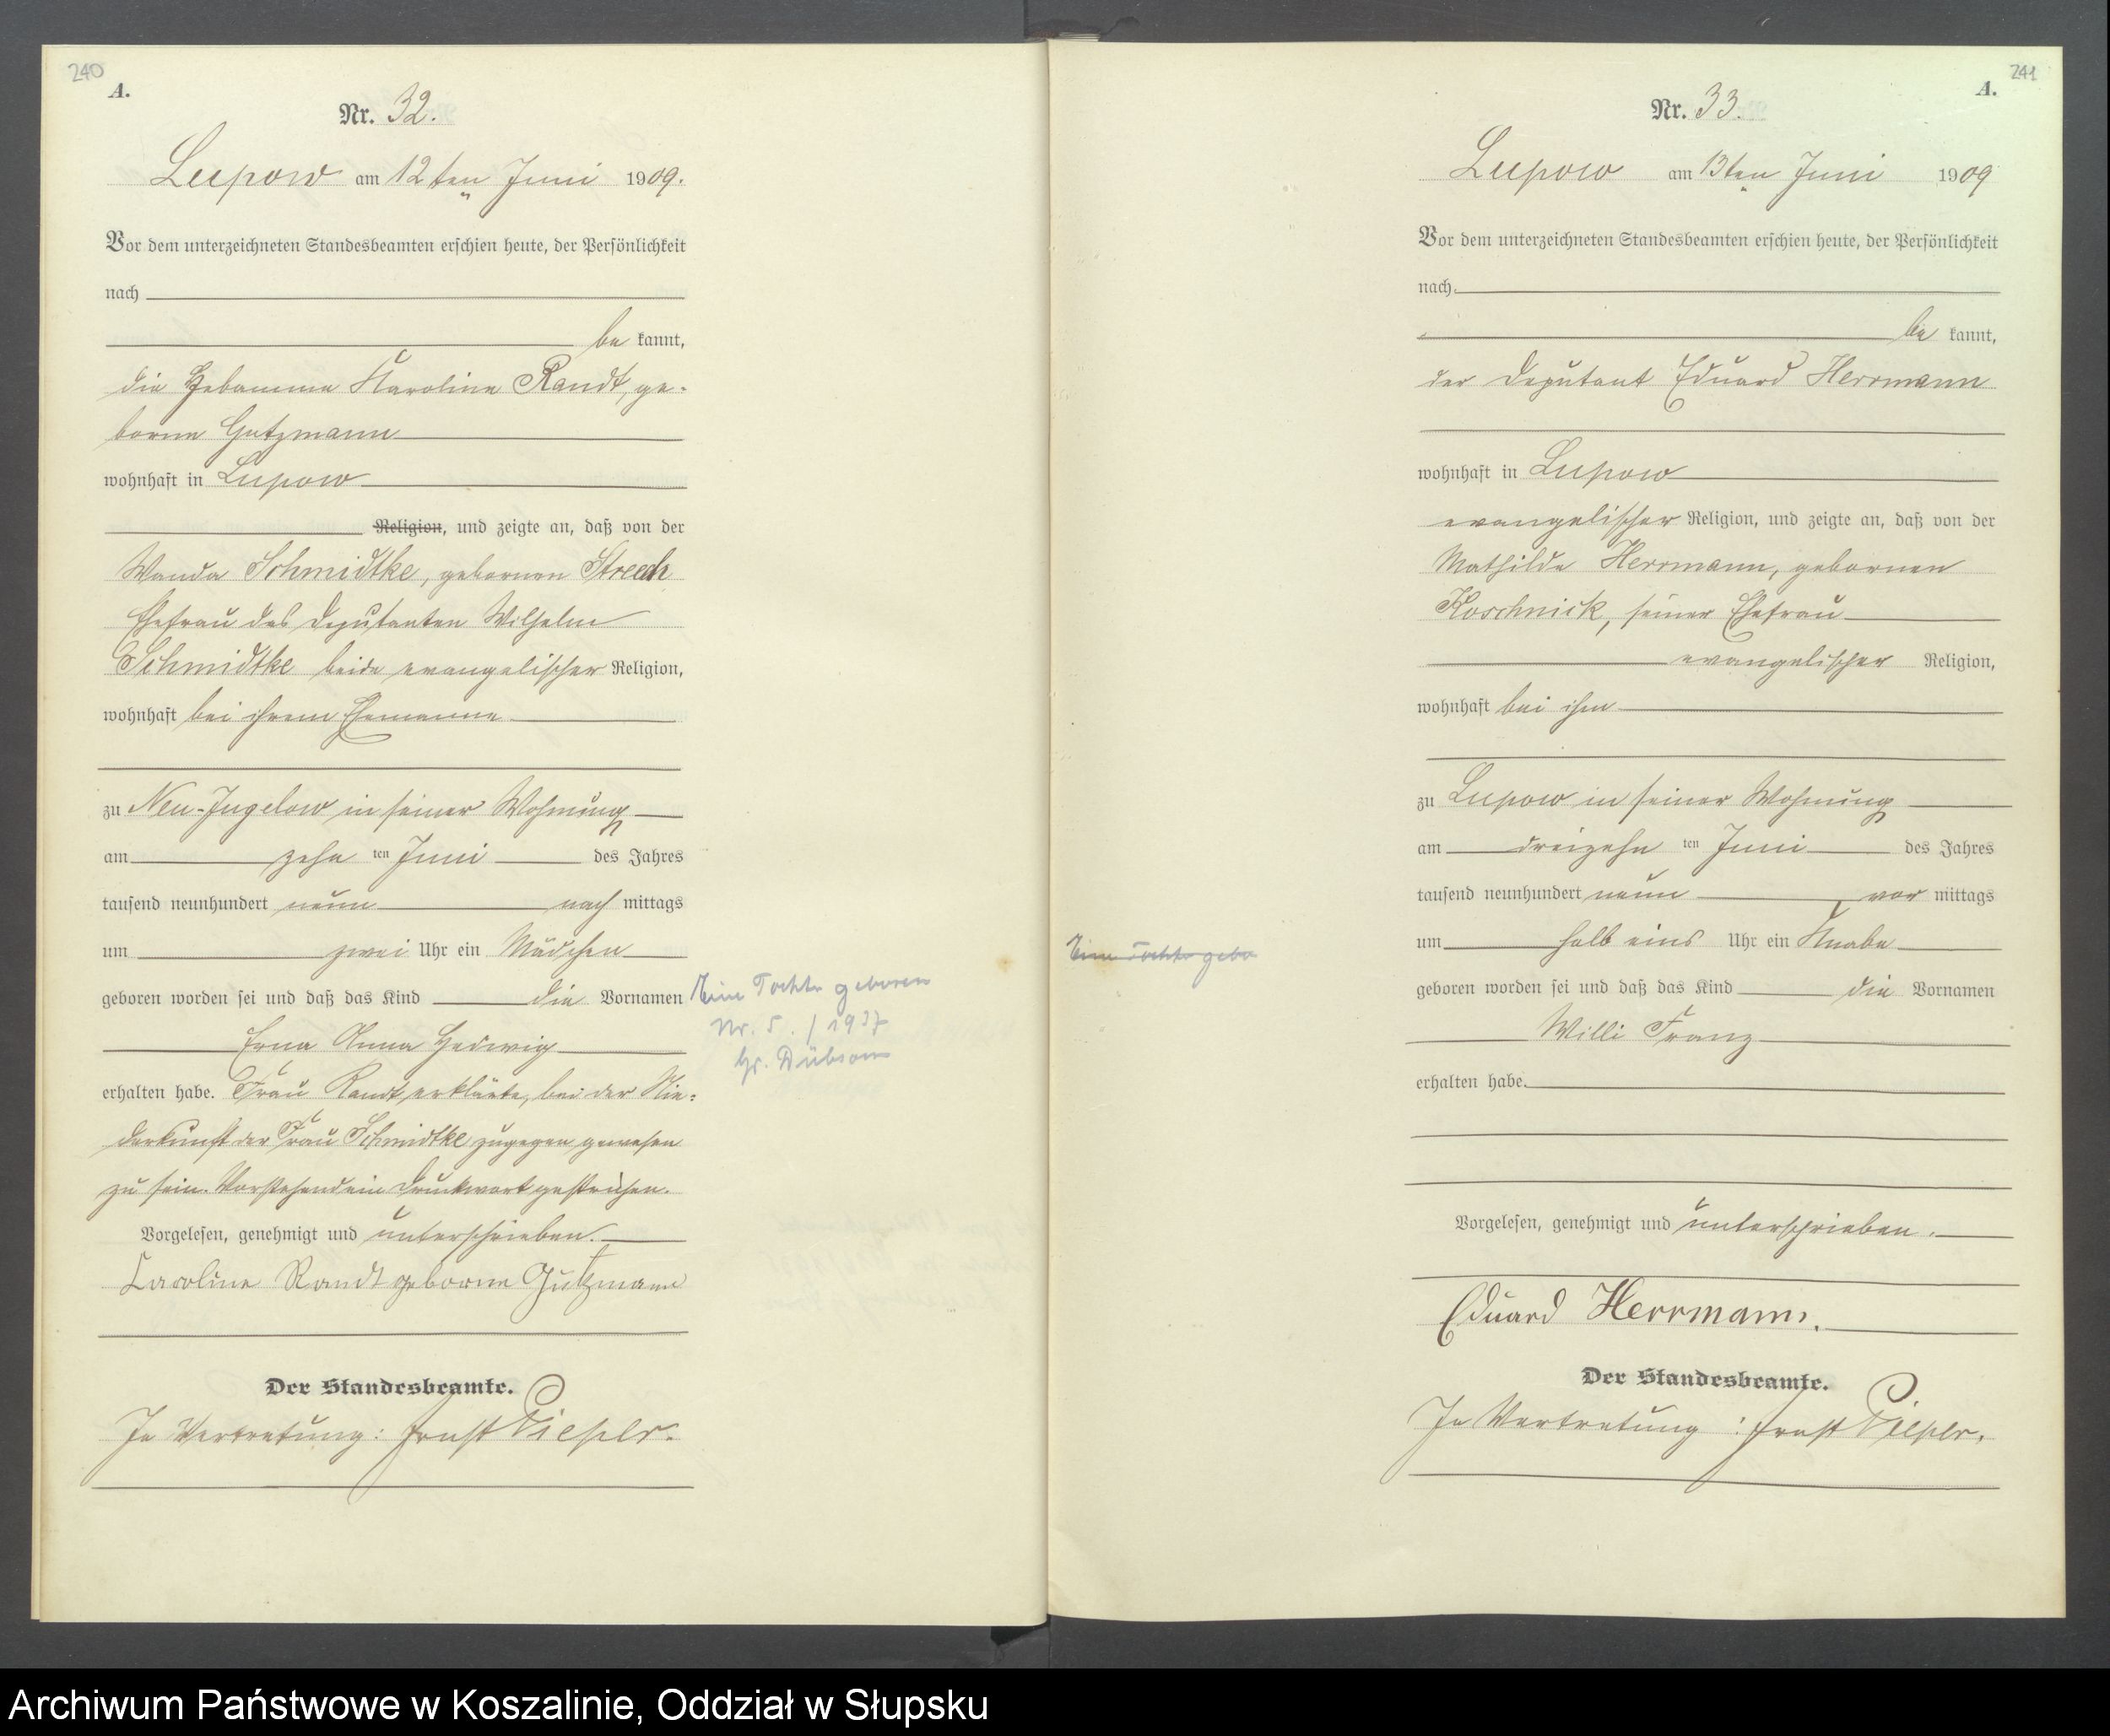 240
A.
Nr. 32.
Lupow am 12ten Juni 1909.
Vor dem unterzeichneten Standesbeamten erschien heute, der Persönlichkeit
nach
be kannt,
die Hebamme Karoline Randt, ge-
borne Gutzmann
wohnhaft in Lupow
Religion, und zeigte an, daß von der
Wanda Schmidtke, gebornen Streech
Ehefrau des Deputanten Wilhelm
Schmidtke beide evangelischer Religion,
wohnhaft bei ihrem Ehemanne
zu Neu-Jugelow in seiner Wohnung
am zehn ten Juni des Jahres
tausend neunhundert neun nach mittags
um zwei Uhr ein Mädchen
geboren worden sei und daß das Kind die Vornamen
Erna Anna Hedwig
erhalten habe. Frau Randt erklärte, bei der Nie-
derkunft der Frau Schmidtke zugegen gewesen
zu sein. Vorstehend ein Druckwort gestrichen.
Vorgelesen, genehmigt und unterschrieben.
Caroline Randt geborne Gutzmann
Der Standesbeamte.
In Vertretung: Ernst Piepls.
Eine Tochter geboren
Nr. 5. / 1937
Gr. Dübsow
241
A.
Nr. 33.
Lupow am 13ten Juni 1909
Vor dem unterzeichneten Standesbeamten erschien heute, der Persönlichkeit
nach
be kannt,
der Deputant Eduard Herrmann
wohnhaft in Lupow
evangelischer Religion, und zeigte an, daß von der
Mathilde Herrmann, gebornen
Koschnick, seiner Ehefrau
evangelischer Religion,
wohnhaft bei ihm
zu Lupow in seiner Wohnung
am dreizehn ten Juni des Jahres
tausend neunhundert neun vor mittags
um halb eins Uhr ein Knabe
geboren worden sei und daß das Kind die Vornamen
Willi Franz
erhalten habe.
Vorgelesen, genehmigt und unterschrieben.
Eduard Herrmann.
Der Standesbeamte.
In Vertretung: Ernst Piepls.
Eine Tochter gebo
Archiwum Państwowe w Koszalinie, Oddział w Słupsku